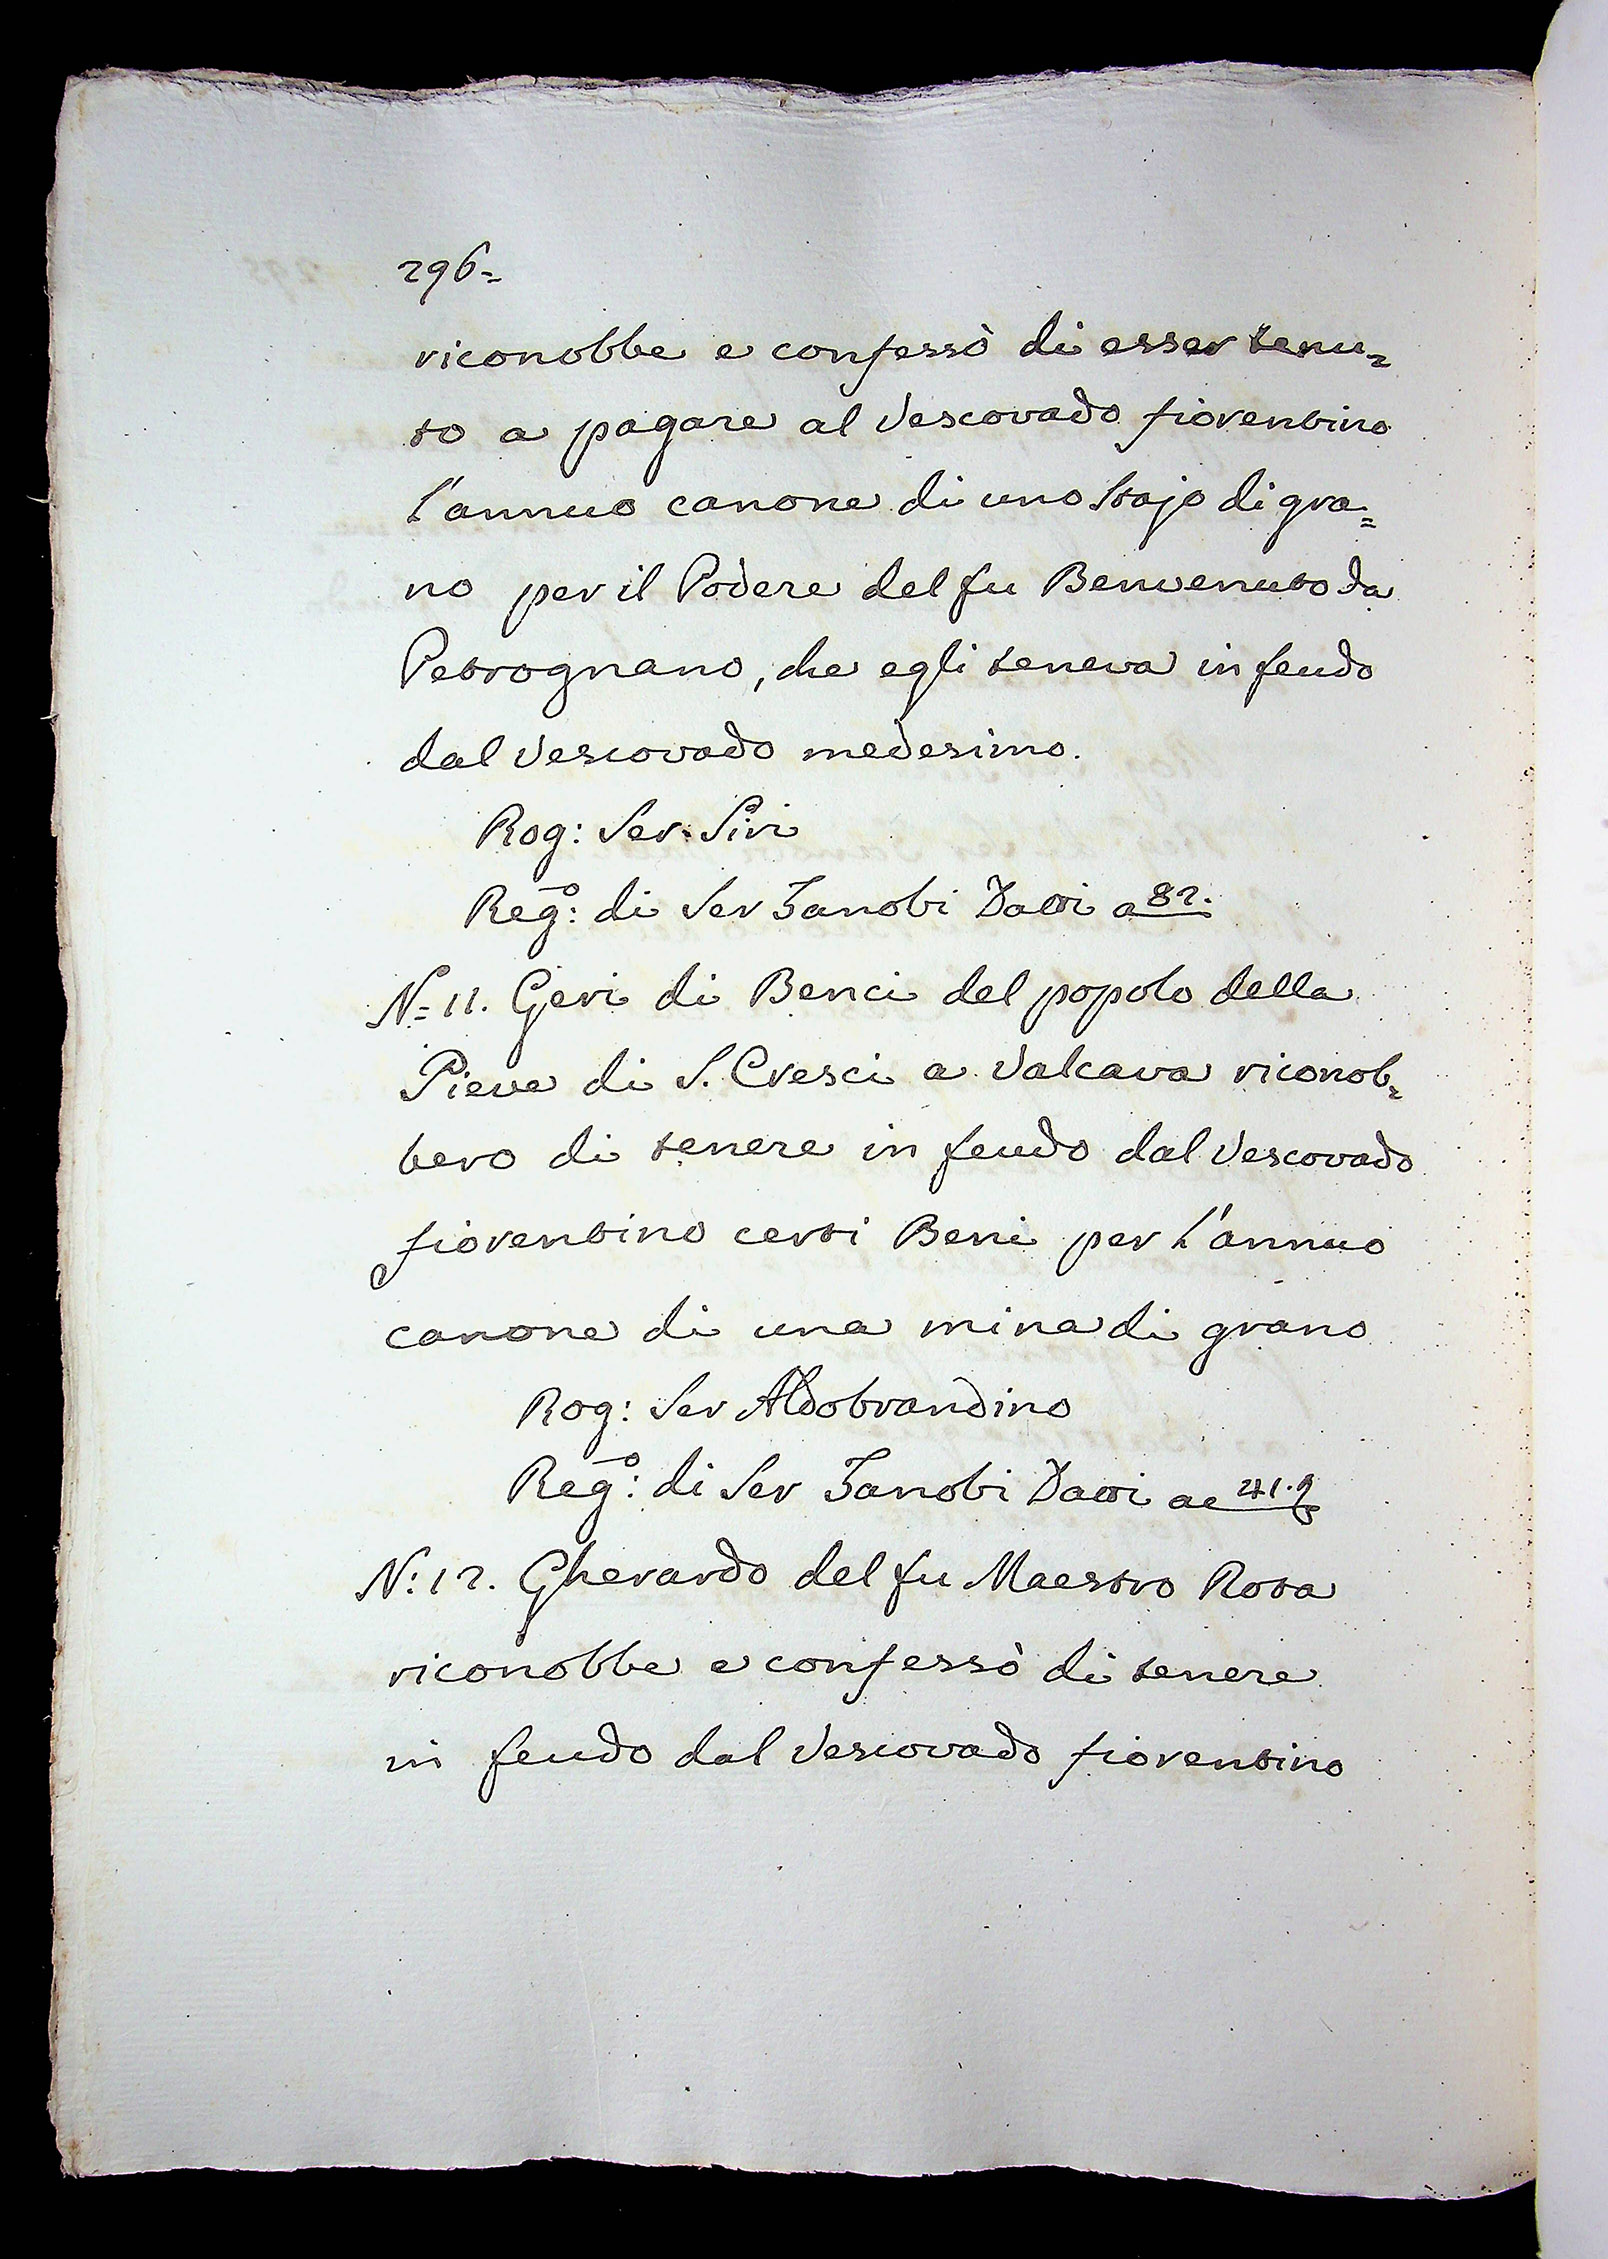 296=
riconobbe e confessò di esser tenu=
to a pagare al Vescovado fiorentino
l'annuo canone di uno Stajo di gra=
no per il Podere del fu Benvenuto da
Petrognano, che egli teneva in feudo
dal Vescovado medesimo.
Rog: Ser Siri
Reg.º: di Ser Zanobi Datti a 82.
N= 11. Geri di Benci del popolo della
Pieve di S. Cresci a Valcava riconob=
bero di tenere in feudo dal Vescovado
fiorentino certi Beni per l'annuo
canone di una mina di grano
Rog: Ser Aldobrandino
Reg.º: di Ser Zanobi Datti ac 41.
N: 12. Gherardo del fu Maestro Rota
riconobbe e confessò di tenere
in feudo dal Vescovado fiorentino